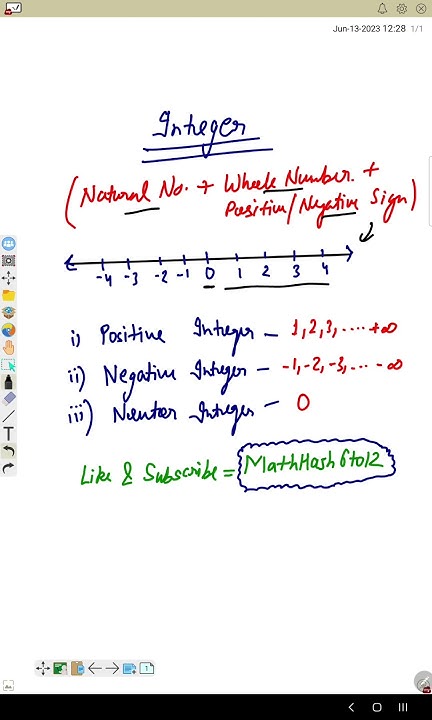 Jun-13-2023 12:28 1/1
Integer
(Natural No. + Whole Number +
Positive/Negative Sign)
-4 -3 -2 -1 0 1 2 3 4
i) Positive Integer - 1, 2, 3, ..... +∞
ii) Negative Integer - -1, -2, -3, ... -∞
iii) Neuter Integer - 0
Like & Subscribe = MathHash6to12
T
1